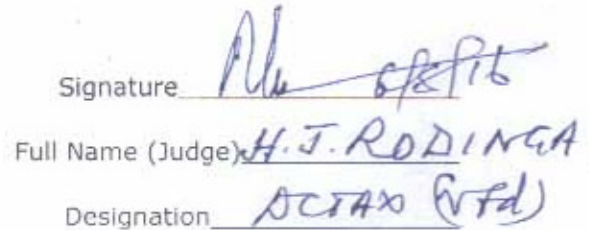 Signature 6/8/16
Full Name (Judge) H.J. RODINGA
Designation DCTAX (rtd)